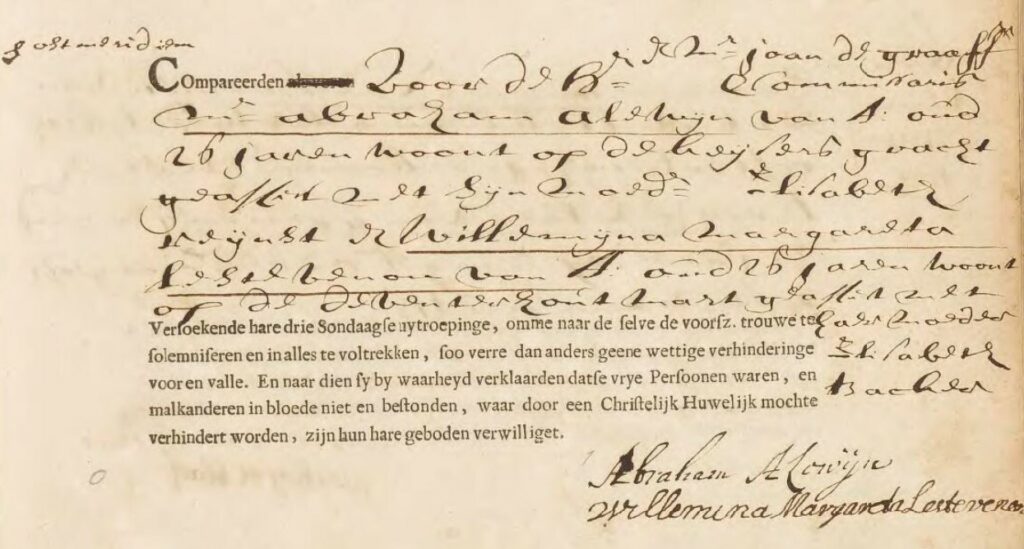 post meridiem
COmpareerden als voren Voor de Hr. & Mr. Joan de Graaff Commissaris
Mr. Abraham Alewijn van A: oud
26 Jaren woont op de keijsers gracht
geassist met zijn moedr Elisabeth
reijnst & Willemijna Margareta
Lestevenon van A: oud 26 Jaren woont
op de deventer hout mart geassist met
Versoekende hare drie Sondaagse uytroepinge, omme naar de selve de voorsz. trouwe te haer moeder
solemniseren en in alles te voltrekken, soo verre dan anders geene wettige verhinderinge Elisabeth
voor en valle. En naar dien sy by waarheyd verklaarden datse vrye Persoonen waren, en Backer
malkanderen in bloede niet en bestonden, waar door een Christelijk Huwelijk mochte
verhindert worden, zijn hun hare geboden verwilliget.
Abraham Alewijn
Willemina Margareta Lestevenon